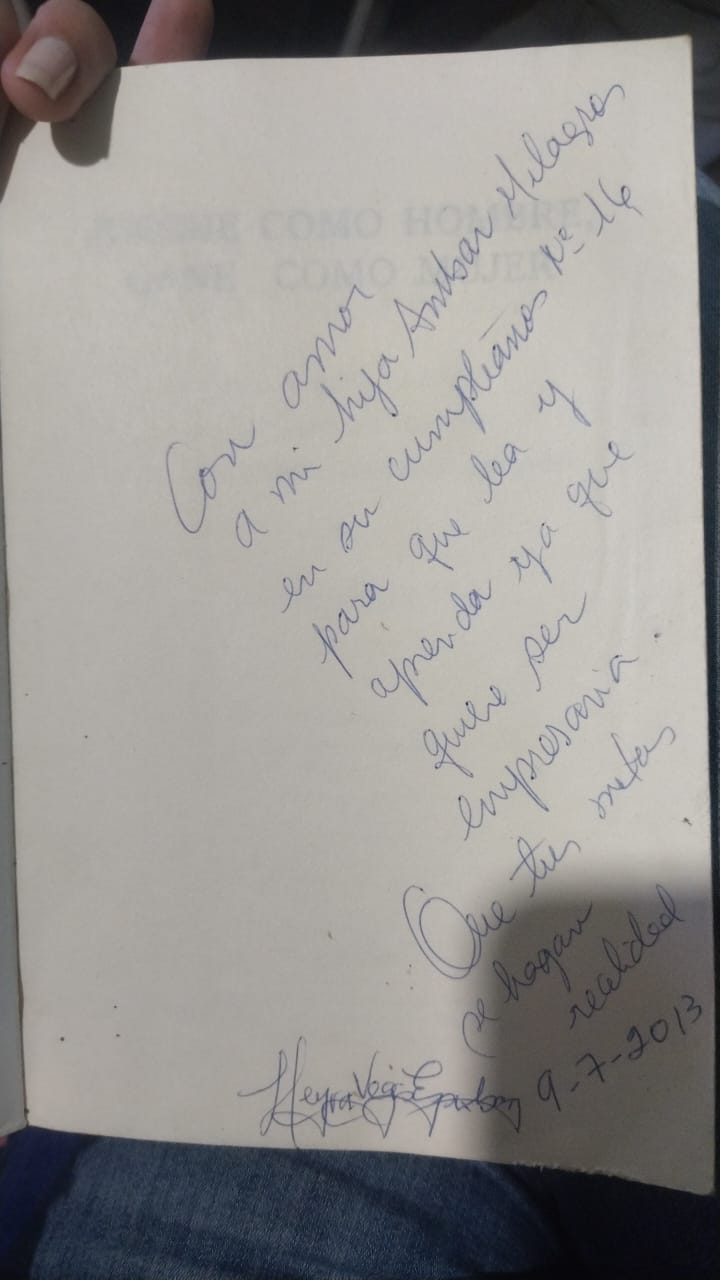 COMO HOMBRE,
COMO MUJER
Con amor
a mi hija Ambar Milagros
en su cumpleaños Nº 16
para que lea y
aprenda ya que
quiere ser
empresaria.
Que tus metas
se hagan
realidad
9-7-2013